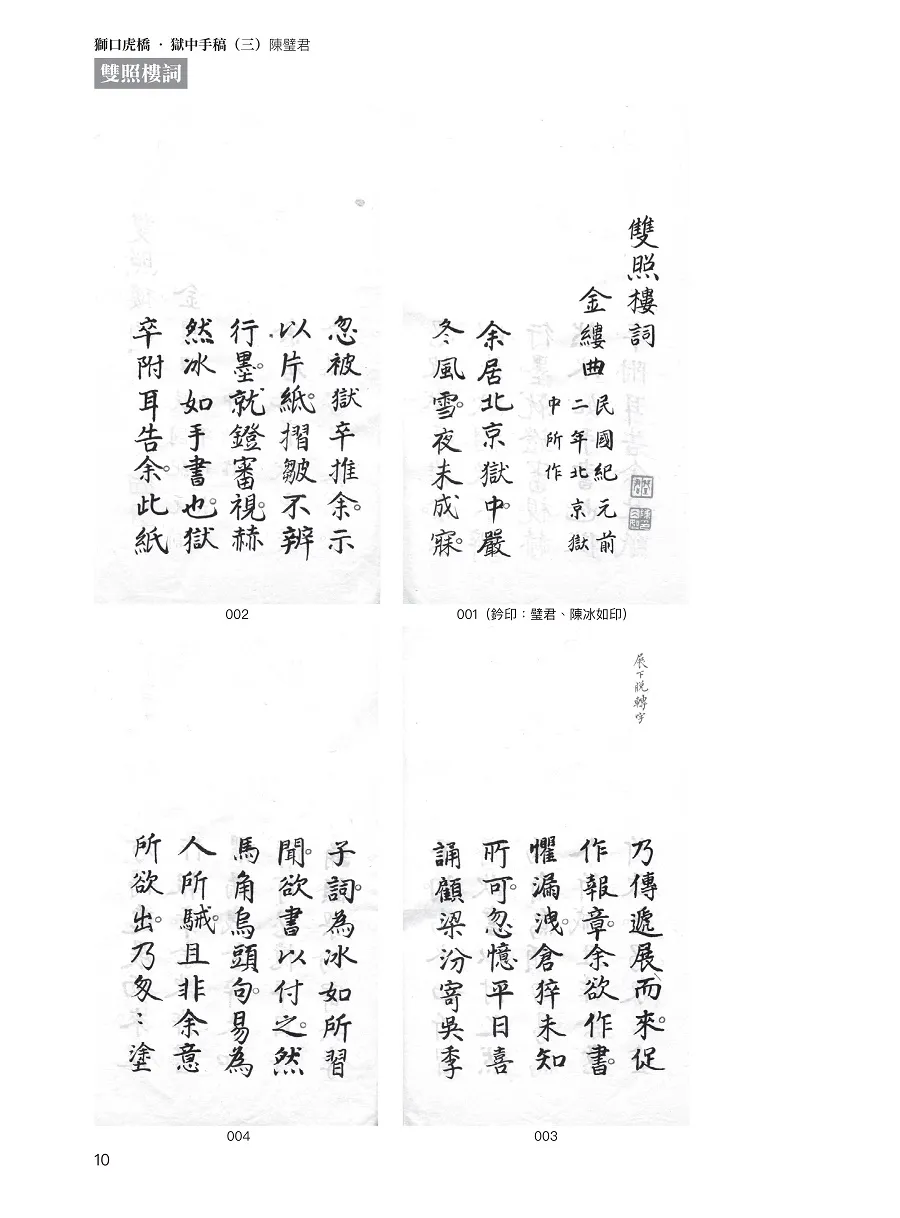 獅口虎橋 · 獄中手稿（三）陳璧君
雙照樓詞
雙照樓詞
金縷曲
民國紀元前
二年北京獄
中所作
余居北京獄中。嚴
冬風雪。夜未成寐。
001（鈐印：璧君、陳冰如印）
忽被獄卒推余。示
以片紙。摺皺不辨
行墨。就鐙審視。赫
然冰如手書也。獄
卒附耳告余。此紙
002
展下脱轉字
乃傳遞展而來。促
作報章。余欲作書。
懼漏洩。倉猝未知
所可。忽憶平日喜
誦顧梁汾寄吳季
003
子詞。為冰如所習
聞。欲書以付之。然
馬角烏頭句。易為
人所駴。且非余意
所欲出。乃匆〻塗
004
10